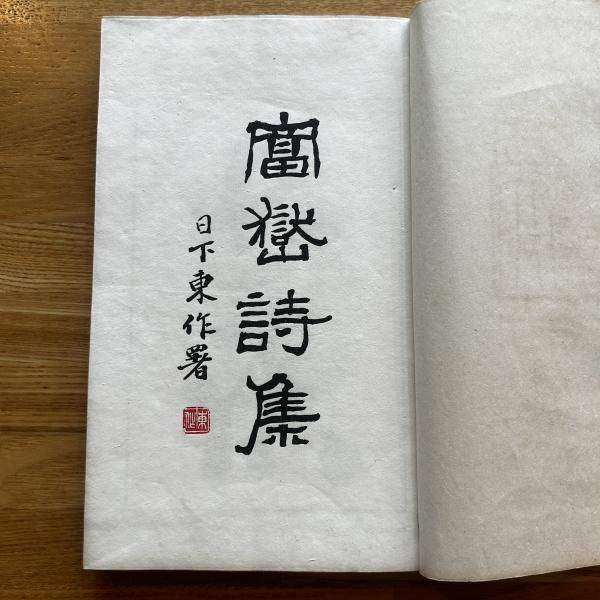 富嶽詩集
日下東作署
東作